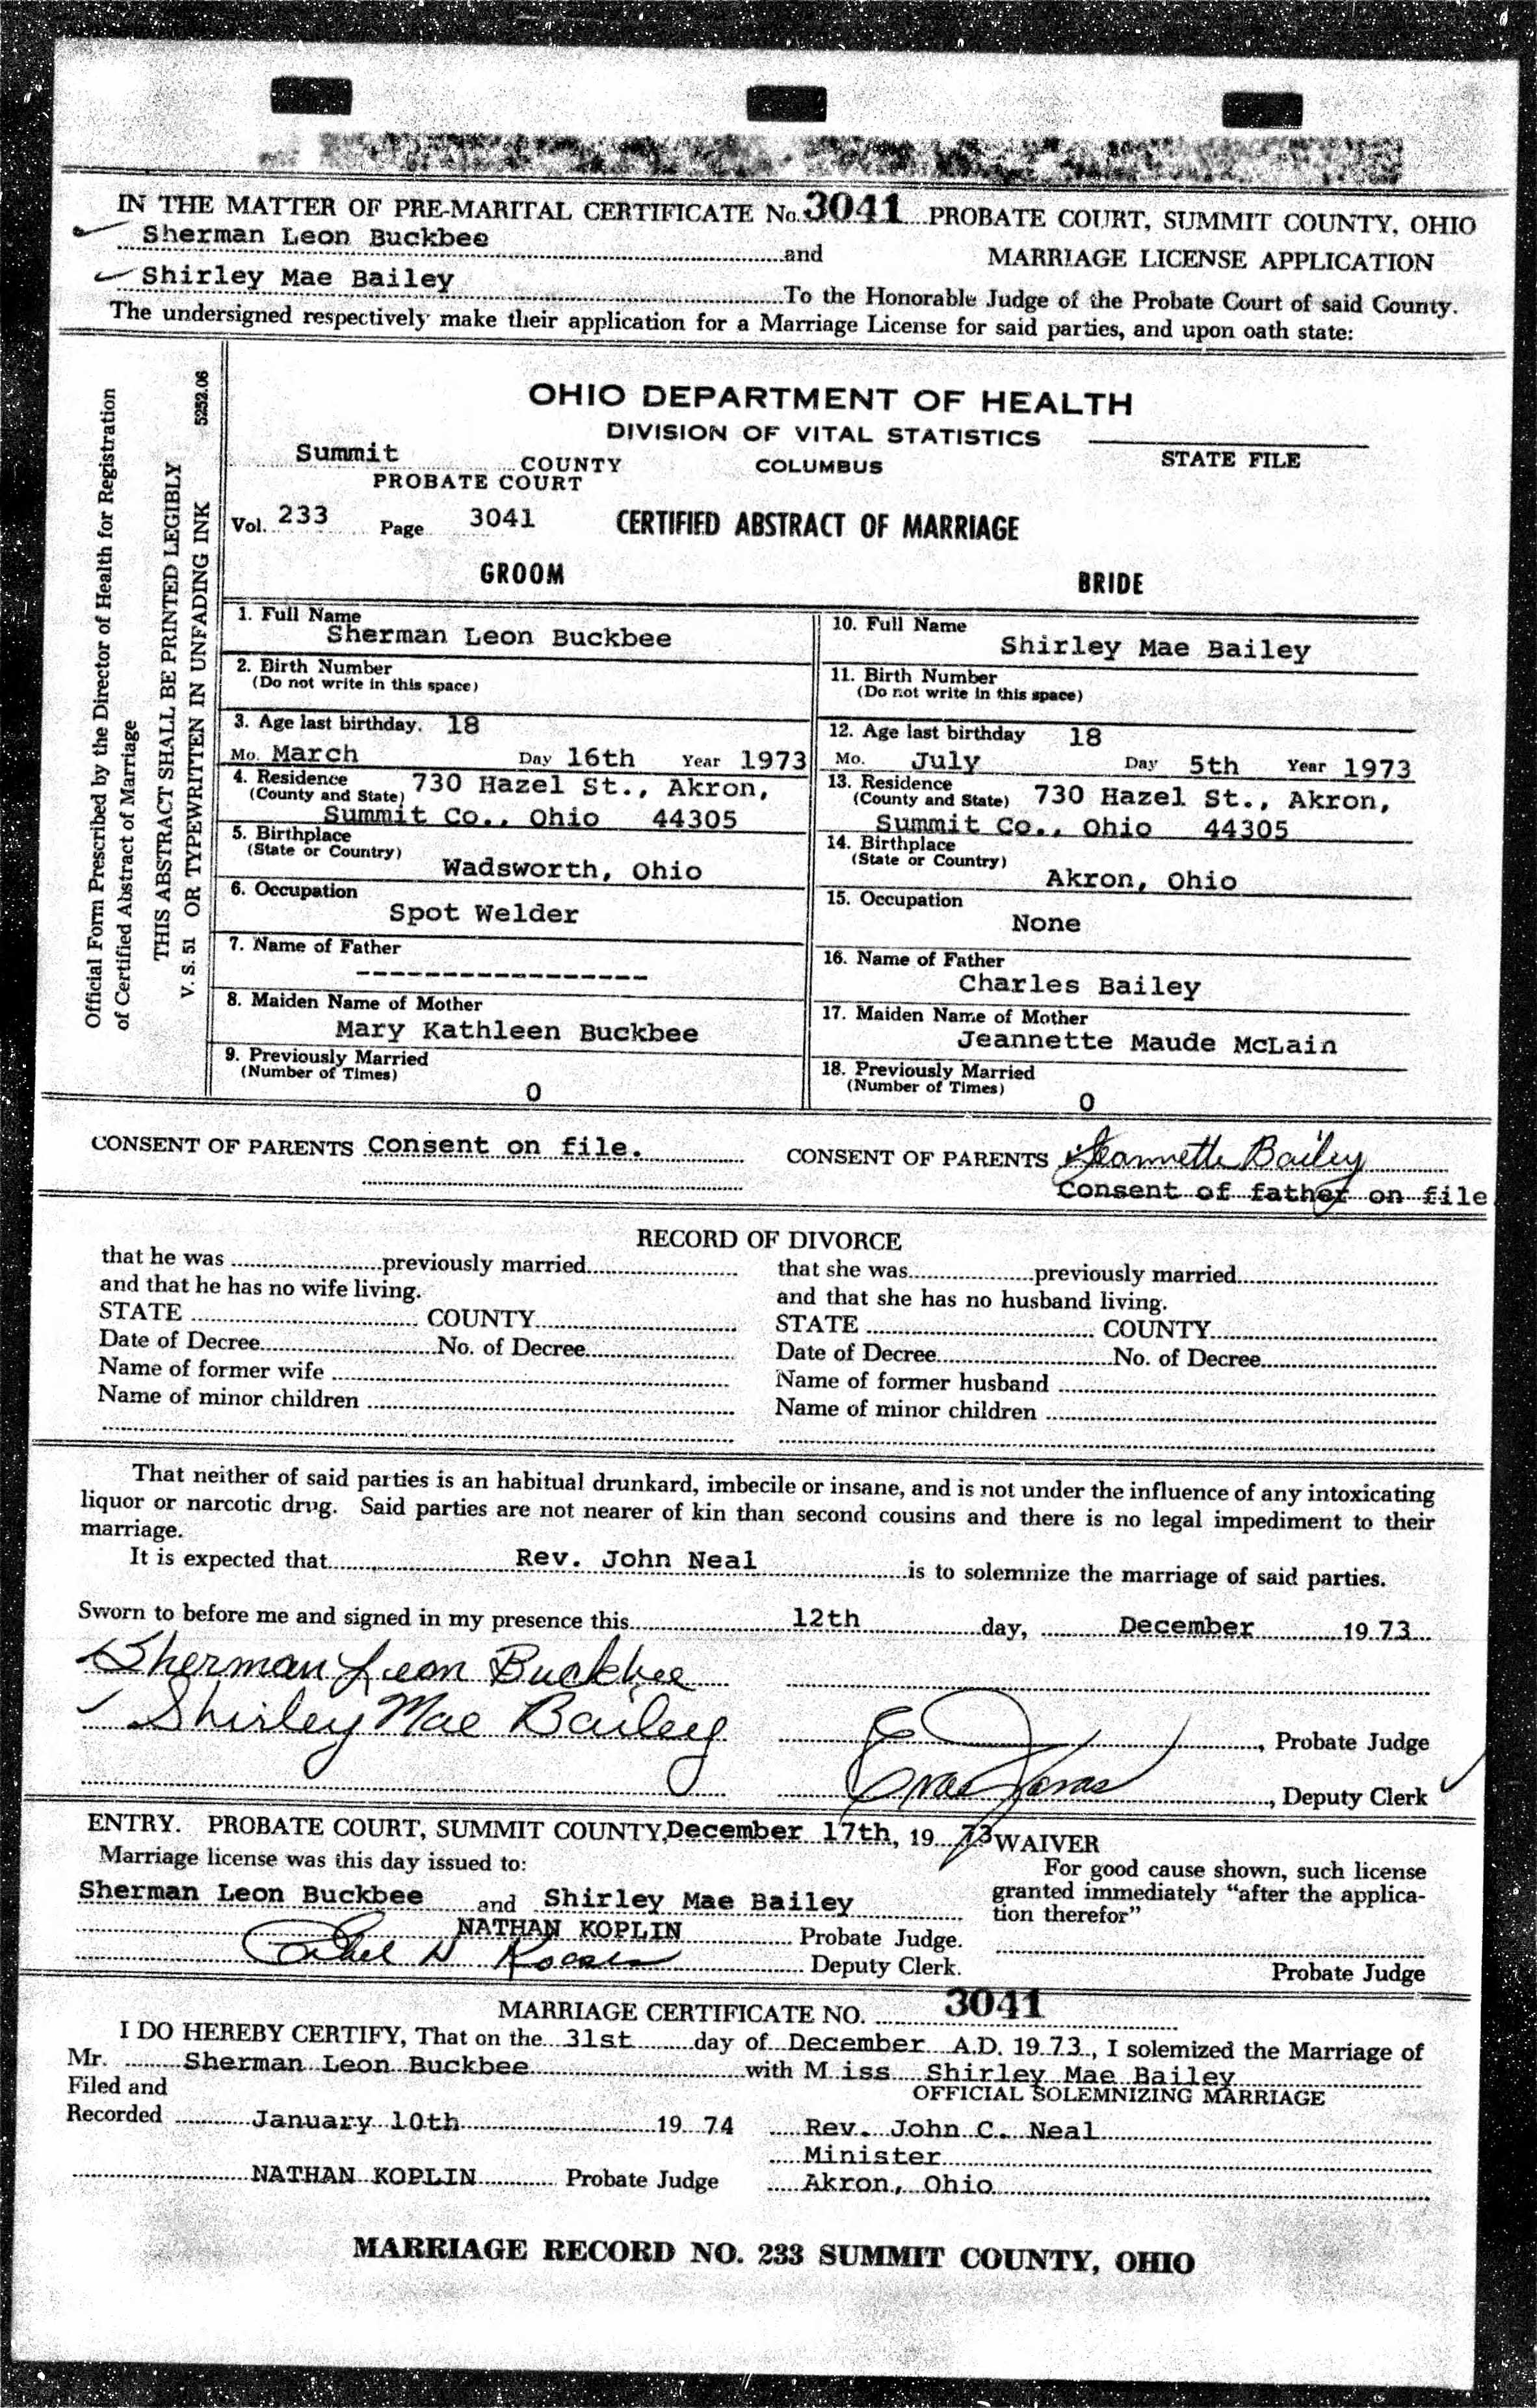 IN THE MATTER OF PRE-MARITAL CERTIFICATE No. 3041 PROBATE COURT, SUMMIT COUNTY, OHIO
Sherman Leon Buckbee and MARRIAGE LICENSE APPLICATION
Shirley Mae Bailey To the Honorable Judge of the Probate Court of said County.
The undersigned respectively make their application for a Marriage License for said parties, and upon oath state:
Official Form Prescribed by the Director of Health for Registration
of Certified Abstract of Marriage
THIS ABSTRACT SHALL BE PRINTED LEGIBLY
V. S. 51 OR TYPEWRITTEN IN UNFADING INK 5252.06
OHIO DEPARTMENT OF HEALTH
DIVISION OF VITAL STATISTICS
Summit COUNTY COLUMBUS STATE FILE
PROBATE COURT
Vol. 233 Page 3041 CERTIFIED ABSTRACT OF MARRIAGE
GROOM
1. Full Name
Sherman Leon Buckbee
2. Birth Number
(Do not write in this space)
3. Age last birthday. 18
Mo. March Day 16th Year 1973
4. Residence 730 Hazel St., Akron,
(County and State)
Summit Co., Ohio 44305
5. Birthplace
(State or Country)
Wadsworth, Ohio
6. Occupation
Spot Welder
7. Name of Father
-----------------
8. Maiden Name of Mother
Mary Kathleen Buckbee
9. Previously Married
(Number of Times)
0
BRIDE
10. Full Name
Shirley Mae Bailey
11. Birth Number
(Do not write in this space)
12. Age last birthday 18
Mo. July Day 5th Year 1973
13. Residence
(County and State) 730 Hazel St., Akron,
Summit Co., Ohio 44305
14. Birthplace
(State or Country)
Akron, Ohio
15. Occupation
None
16. Name of Father
Charles Bailey
17. Maiden Name of Mother
Jeannette Maude McLain
18. Previously Married
(Number of Times)
0
CONSENT OF PARENTS Consent on file.
CONSENT OF PARENTS Jeannette Bailey
Consent of father on file
RECORD OF DIVORCE
that he was previously married
and that he has no wife living.
STATE COUNTY
Date of Decree No. of Decree
Name of former wife
Name of minor children
that she was previously married
and that she has no husband living.
STATE COUNTY
Date of Decree No. of Decree
Name of former husband
Name of minor children
That neither of said parties is an habitual drunkard, imbecile or insane, and is not under the influence of any intoxicating
liquor or narcotic drug. Said parties are not nearer of kin than second cousins and there is no legal impediment to their
marriage.
It is expected that Rev. John Neal is to solemnize the marriage of said parties.
Sworn to before me and signed in my presence this 12th day, December 19 73
Sherman Leon Buckbee
Shirley Mae Bailey
, Probate Judge
, Deputy Clerk
ENTRY. PROBATE COURT, SUMMIT COUNTY, December 17th, 19 73
Marriage license was this day issued to:
Sherman Leon Buckbee and Shirley Mae Bailey
NATHAN KOPLIN Probate Judge.
Deputy Clerk.
WAIVER
For good cause shown, such license
granted immediately “after the applica-
tion therefor”
Probate Judge
MARRIAGE CERTIFICATE NO. 3041
I DO HEREBY CERTIFY, That on the 31st day of December A.D. 19 73, I solemized the Marriage of
Mr. Sherman Leon Buckbee with Miss Shirley Mae Bailey
Filed and OFFICIAL SOLEMNIZING MARRIAGE
Recorded January 10th 19 74 Rev. John C. Neal
Minister
NATHAN KOPLIN Probate Judge Akron, Ohio
MARRIAGE RECORD NO. 233 SUMMIT COUNTY, OHIO